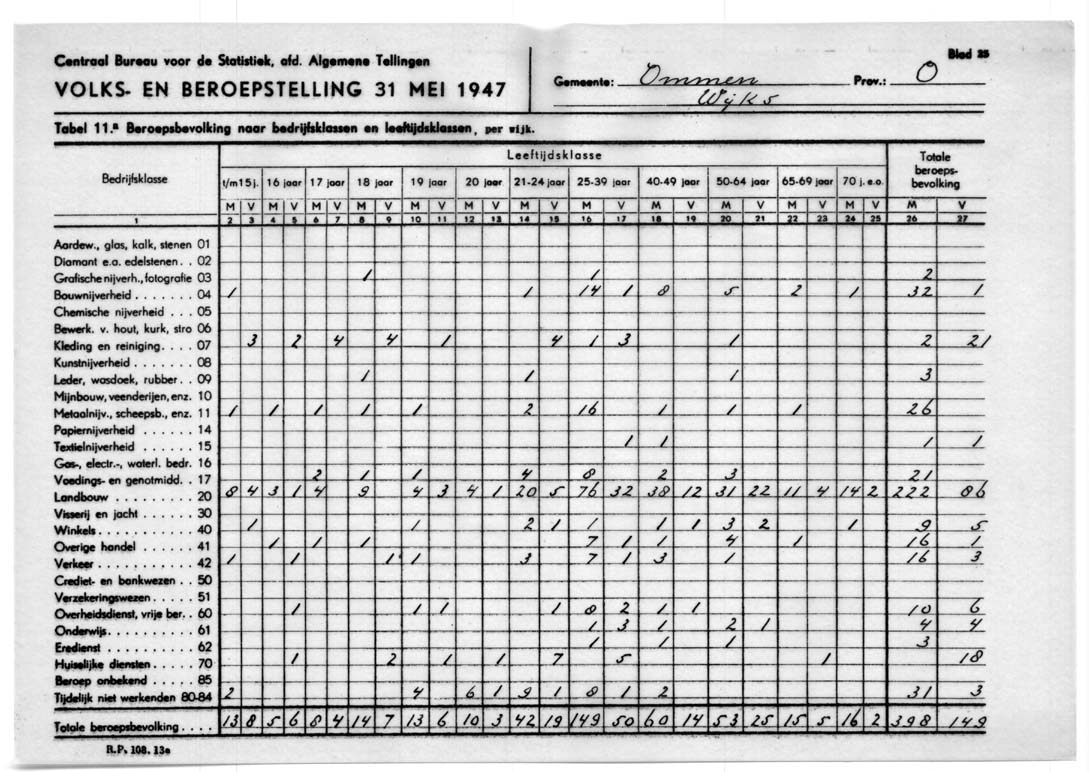 Centraal Bureau voor de Statistiek, afd. Algemene Tellingen
Blad 25
VOLKS- EN BEROEPSTELLING 31 MEI 1947
Gemeente: Ommen Prov.: O
Wijk 5
Tabel 11.ª Beroepsbevolking naar bedrijfsklassen en leeftijdsklassen, per wijk.
Bedrijfsklasse Leeftijdsklasse Totale beroeps-bevolking
t/m 15 j. 16 jaar 17 jaar 18 jaar 19 jaar 20 jaar 21-24 jaar 25-39 jaar 40-49 jaar 50-64 jaar 65-69 jaar 70 j. e.o.
M V M V M V M V M V M V M V M V M V M V M V M V M V
1 2 3 4 5 6 7 8 9 10 11 12 13 14 15 16 17 18 19 20 21 22 23 24 25 26 27
Aardew., glas, kalk, stenen 01
Diamant e.a. edelstenen . . 02
Grafische nijverh., fotografie 03 1 1 2
Bouwnijverheid . . . . . . . 04 1 1 14 1 8 5 2 1 32 1
Chemische nijverheid . . . 05
Bewerk. v. hout, kurk, stro 06
Kleding en reiniging. . . . 07 3 2 4 4 1 4 1 3 1 2 21
Kunstnijverheid . . . . . . . 08
Leder, wasdoek, rubber. . 09 1 1 1 3
Mijnbouw, veenderijen, enz. 10
Metaalnijv., scheepsb., enz. 11 1 1 1 1 1 2 16 1 1 1 26
Papiernijverheid . . . . . . 14
Textielnijverheid . . . . . . 15 1 1 1 1
Gas-, electr.-, waterl. bedr. 16
Voedings- en genotmidd. . 17 2 1 1 4 8 2 3 21
Landbouw . . . . . . . . . 20 8 4 3 1 4 9 4 3 4 1 20 5 76 32 38 12 31 22 11 4 14 2 222 86
Visserij en jacht . . . . . . 30
Winkels . . . . . . . . . . . 40 1 1 2 1 1 1 1 3 2 1 9 5
Overige handel . . . . . . 41 1 1 1 7 1 1 4 1 16 1
Verkeer . . . . . . . . . . . 42 1 1 1 1 3 7 1 3 1 16 3
Crediet- en bankwezen . . 50
Verzekeringswezen . . . . . 51
Overheidsdienst, vrije ber. . 60 1 1 1 1 8 2 1 1 10 6
Onderwijs . . . . . . . . . . 61 1 3 1 2 1 4 4
Eredienst . . . . . . . . . . 62 1 1 1 3
Huiselijke diensten . . . . . 70 1 2 1 1 7 5 1 18
Beroep onbekend . . . . . 85
Tijdelijk niet werkenden 80-84 2 4 6 1 9 1 8 1 2 31 3
Totale beroepsbevolking . . . . 13 8 5 6 8 4 14 7 13 6 10 3 42 19 149 50 60 14 53 25 15 5 16 2 398 149
R.P. 108. 13e